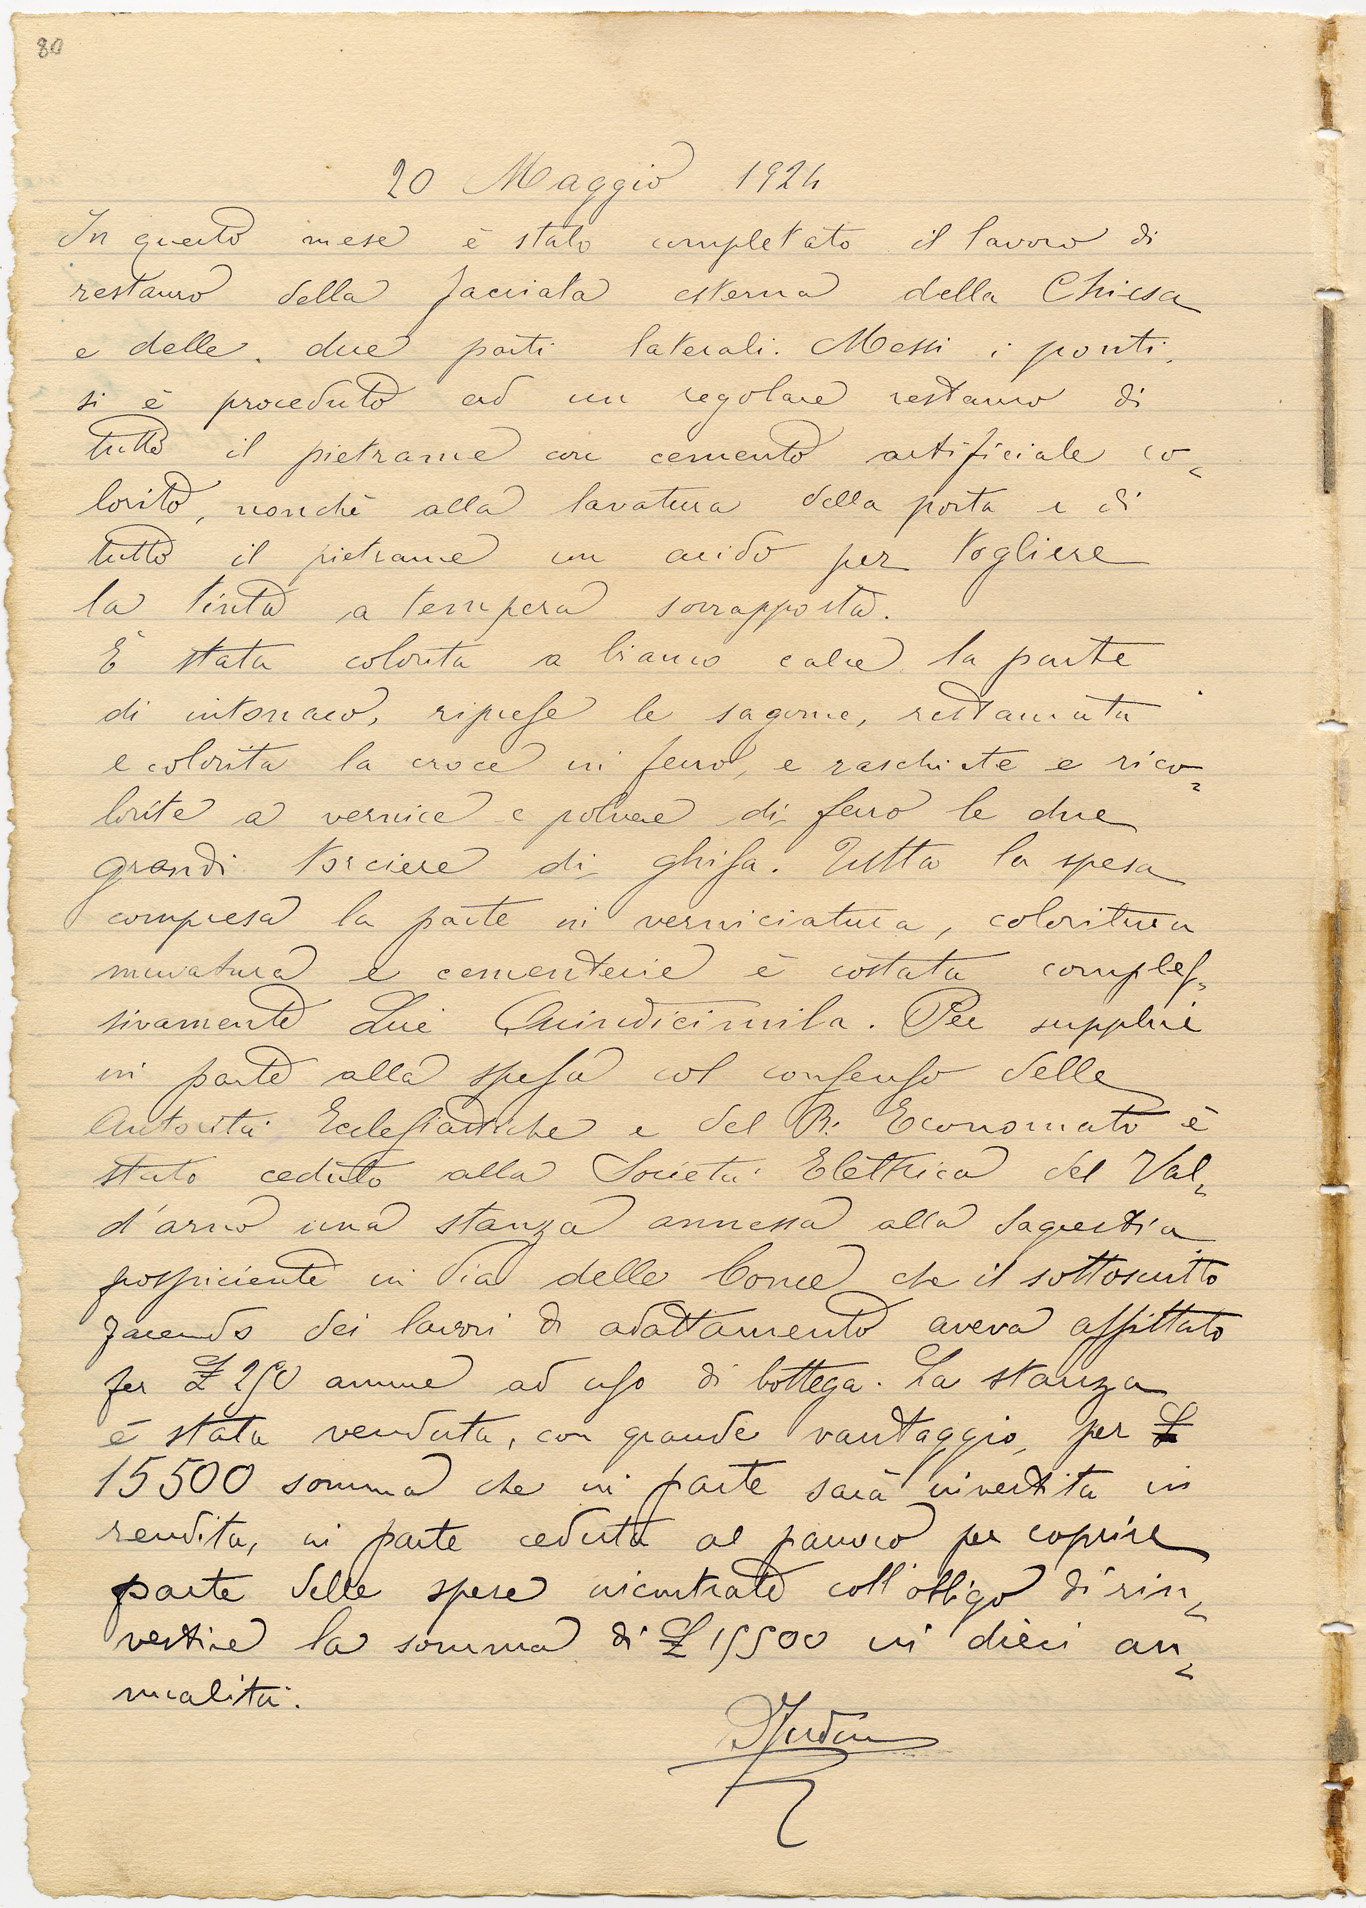 80
20 Maggio 1924
In questo mese è stato completato il lavoro di
restauro della facciata esterna della Chiesa
e delle due parti laterali. Messi i ponti,
si è proceduto ad un regolare restauro di
tutto il pietrame con cemento artificiale co-
lorito, nonchè alla lavatura della porta e di
tutto il pietrame con acido per togliere
la tinta a tempera sovrapposta.
È stata colorita a bianco calce la parte
di intonaco, riprese le sagome, restaurata
e colorita la croce in ferro, e raschiate e rico-
lorite a vernice e polvere di ferro le due
grandi torciere di ghisa. Tutta la spesa
compresa la parte in verniciatura, coloritura
muratura e cementerie è costata comples-
sivamente Lire Quindicimila. Per supplire
in parte alla spesa col consenso delle
Autorità Ecclesiastiche e del R. Economato è
stato ceduto alla Società Elettrica del Val-
d'arno una stanza annessa alla Sagrestia
prospiciente in Via delle Conce che il sottoscritto
facendo dei lavori di adattamento aveva affittato
per £ 250 annue ad uso di bottega. La stanza
è stata venduta, con grande vantaggio, per £
15500 somma che in parte sarà invertita in
rendita, in parte ceduta al parroco per coprire
parte delle spese incontrate coll'obbligo di rin-
vertire la somma di £ 15500 in dieci an-
nualità.